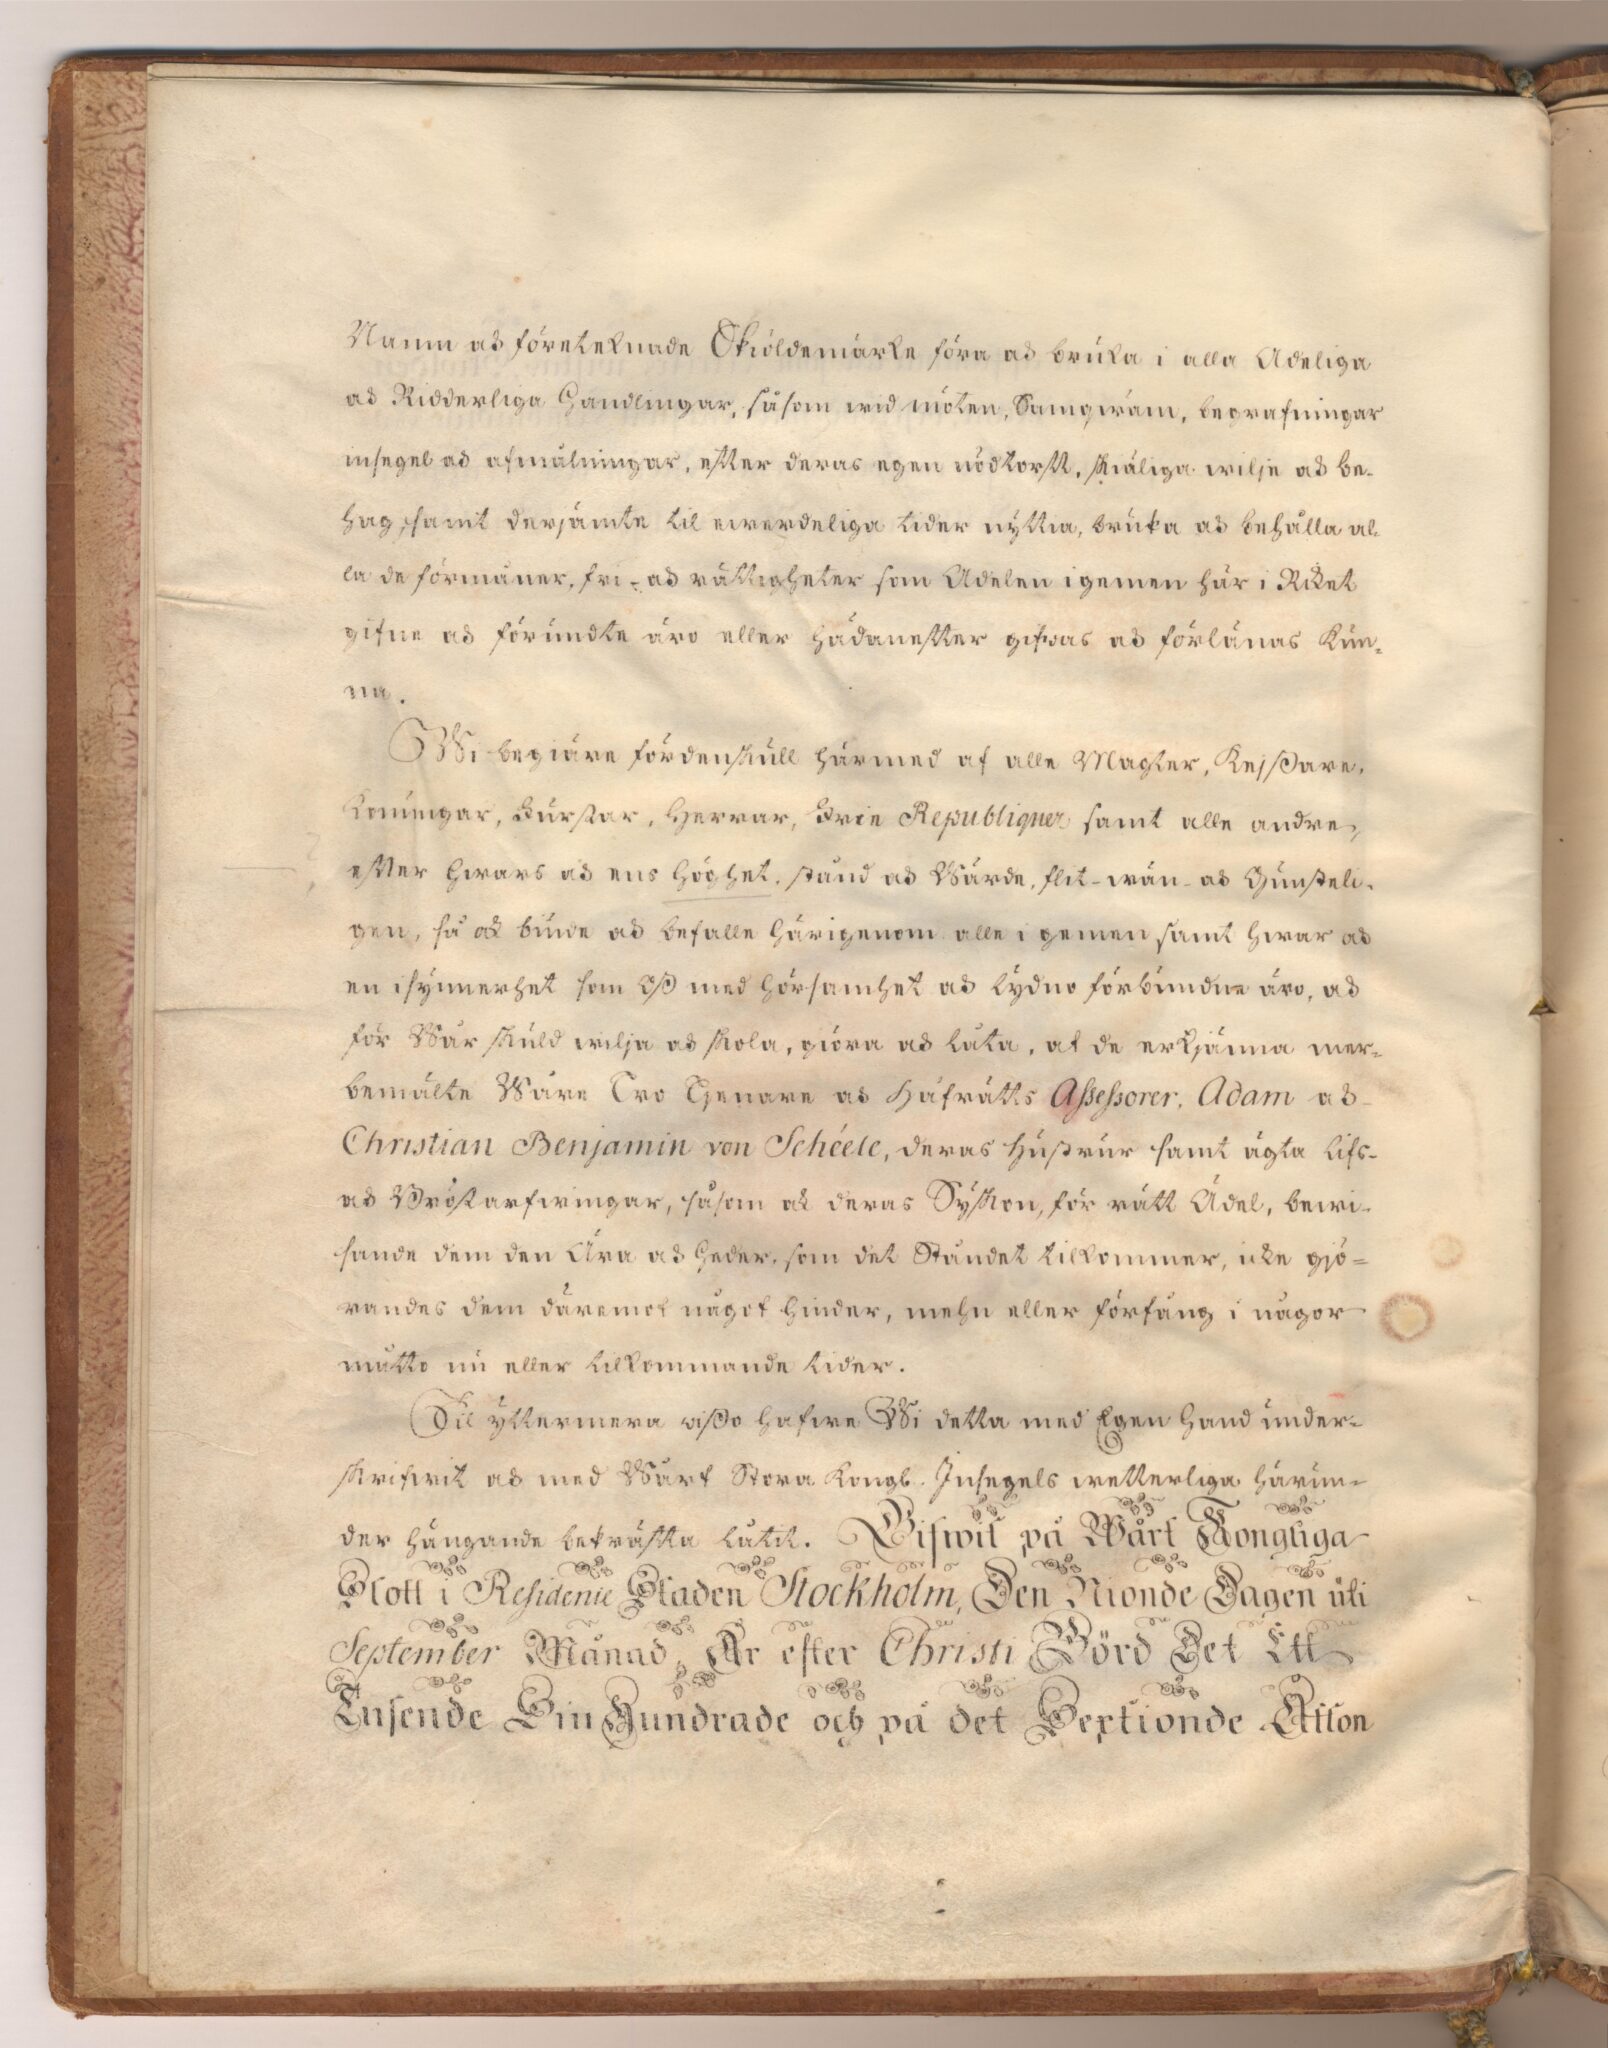 Namn och företeknade Skiöldemärke föra och bruka i alla Adeliga
och Ridderliga Handlingar, såsom wid möten, Samqwäm, begrafningar
insegel och afmålningar, efter deras egen nödtorft, skiäliga wilje och be-
hag, samt derjämte til ewerdeliga tider nyttia, bruka och behålla al-
la de förmåner, fri- och rättigheter som Adelen igemen här i Riket
gifne och förundte äro eller hädanefter gifwas och förlänas kun-
na.
Wi begiäre fördenskull härmed af alle Magter, Kejsare,
Konungar, Furstar, Herrar, Frie Republiquer samt alle andre,
efter hwars och ens Höghet, stånd och Wärde, flit- wän- och Gunsteli-
gen, så ock biude och befalle härigenom alle i gemen samt hwar och
en isynnerhet som Oß med hörsamhet och lydno förbundne äro, at
för Wår skuld wilja och skola, giöra och låta, at de erkjänna mer-
bemälte Wåre Tro Tjenare och Håfrätts Aßeßorer, Adam och
Christian Benjamin von Schéele, deras hustrur samt ägta lifs-
och Bröstarfwingar, såsom ock deras Syskon, för rätt Adel, bewi-
sande dem den Ära och heder, som det Ståndet tilkommer, icke gjö-
randes dem däremot något hinder, mehn eller förfång i någor
måtto nu eller tilkommande tider.
Til yttermera wißo hafwe Wi detta med Egen hand under-
skrifwit och med Wårt Stora Kongl. Insegels wetterliga härun-
der hängande bekräfta låtit. Gifwit på Wårt Kongliga
Slott i Residence Staden Stockholm, Den Nionde Dagen uti
September Månad, År efter Christi Börd Det Ett
Tusende Siu Hundrade och på det Sextionde Åtton